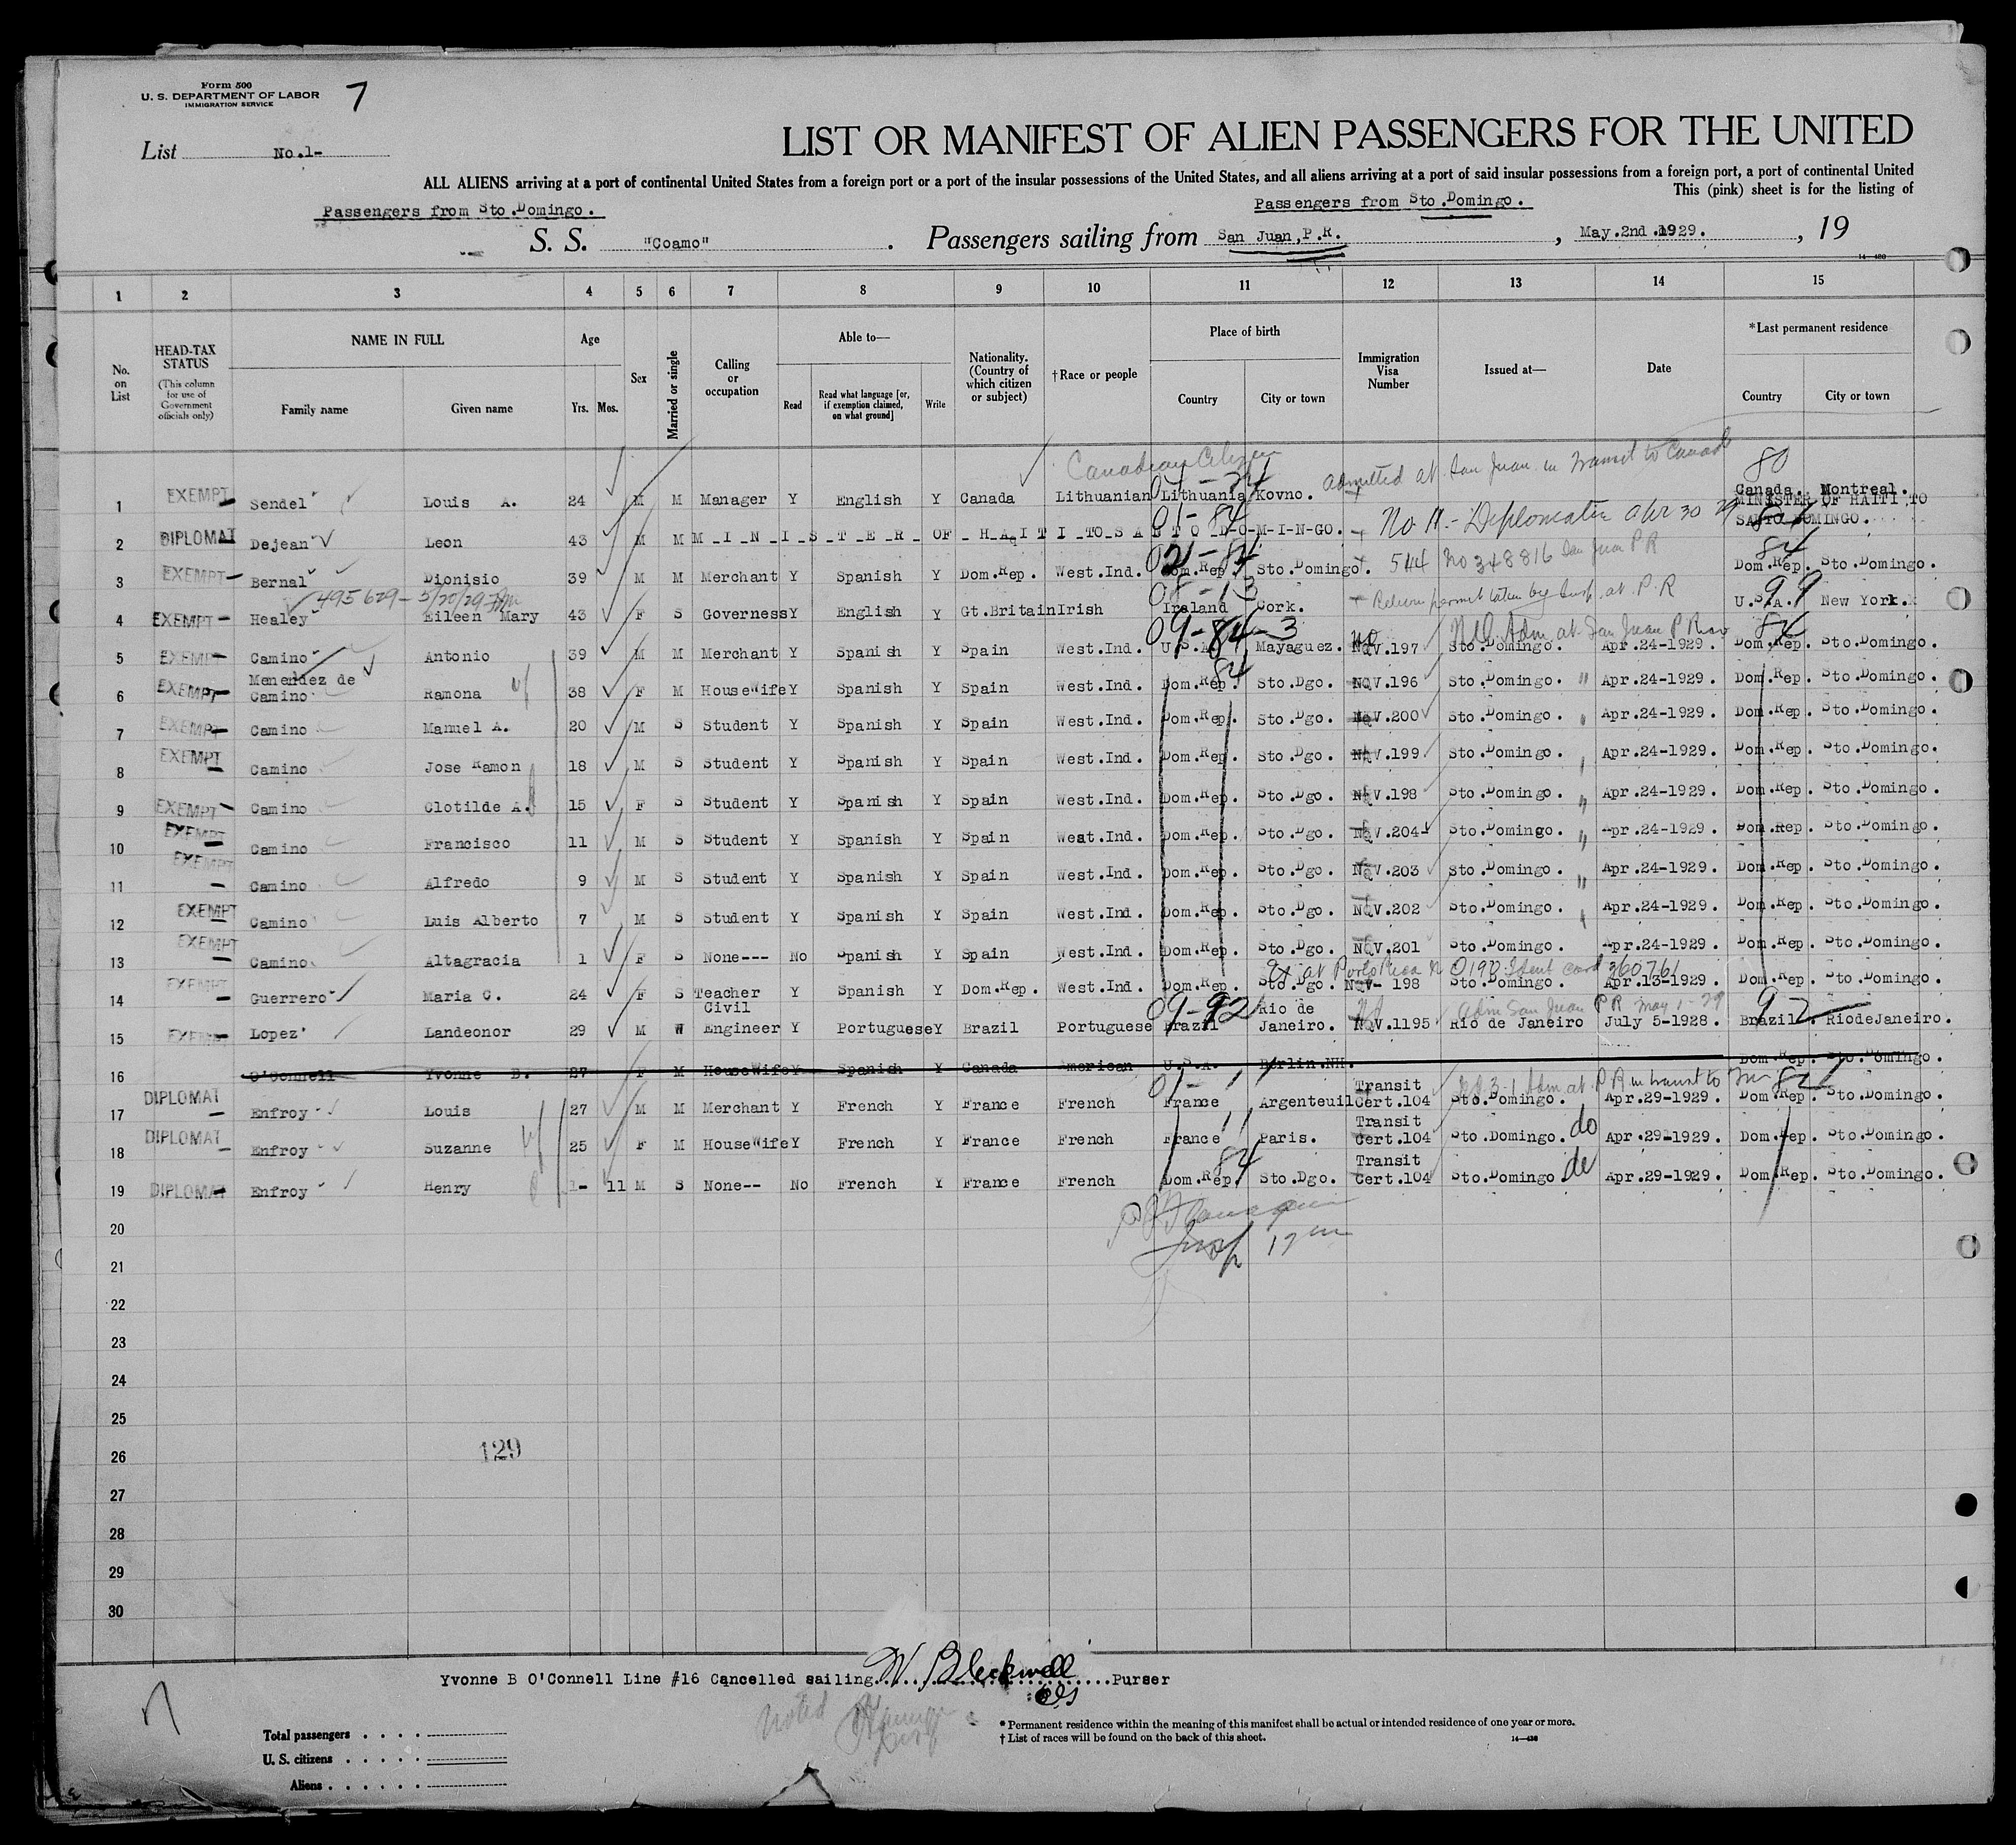 Form 500
U. S. DEPARTMENT OF LABOR
IMMIGRATION SERVICE
7
List No.1-
LIST OR MANIFEST OF ALIEN PASSENGERS FOR THE UNITED
ALL ALIENS arriving at a port of continental United States from a foreign port or a port of the insular possessions of the United States, and all aliens arriving at a port of said insular possessions from a foreign port, a port of continental United
This (pink) sheet is for the listing of
Passengers from Sto.Domingo. Passengers from Sto.Domingo.
S. S. "Coamo". Passengers sailing from San Juan,P.R., May.2nd 1929., 19
14-430
1 2 3 4 5 6 7 8 9 10 11 12 13 14 15
No. on List
HEAD-TAX STATUS
(This column for use of Government officials only)
NAME IN FULL
Family name Given name
Age
Yrs. Mos.
Sex
Married or single
Calling or occupation
Able to—
Read
Read what language [or, if exemption claimed, on what ground]
Write
Nationality. (Country of which citizen or subject)
†Race or people
Place of birth
Country City or town
Immigration Visa Number
Issued at—
Date
*Last permanent residence
Country City or town
Canadian Citizen admitted at San Juan in transit to Canada 80
1 EXEMPT Sendel Louis A. 24 M M Manager Y English Y Canada Lithuanian Lithuania Kovno. Canada. Montreal.
MINISTER OF HAITI TO
SANTO DOMINGO.
01-84 No H - Diplomatic Apr 30 29
2 DIPLOMAT Dejean Leon 43 M M M_I_N_I_S_T_E_R_ OF_ H_A_I T I_TO_S A N T O D-O-M-I-N-GO.
3 EXEMPT Bernal Dionisio 39 M M Merchant Y Spanish Y Dom.Rep. West.Ind. Dom.Rep. Sto.Domingo. 544 No 348816 San Juan PR Dom.Rep. Sto.Domingo.
495629-5/20/29
4 EXEMPT Healey Eileen Mary 43 F S Governess Y English Y Gt.Britain Irish Ireland Cork. Return permit taken by Insp. at P.R U.S.A. New York. 99
09-84-3 Adm. at San Juan P Rico 84
5 EXEMPT Camino Antonio 39 M M Merchant Y Spanish Y Spain West.Ind. U.S.A. Mayaguez. NQV.197 Sto.Domingo. Apr.24-1929. Dom.Rep. Sto.Domingo.
6 EXEMPT Menendez de Camino Ramona 38 F M HouseWife Y Spanish Y Spain West.Ind. Dom.Rep. Sto.Dgo. NQV.196 Sto.Domingo. " Apr.24-1929. Dom.Rep. Sto.Domingo.
7 EXEMPT Camino Manuel A. 20 M S Student Y Spanish Y Spain West.Ind. Dom.Rep. Sto.Dgo. NQV.200 Sto.Domingo. " Apr.24-1929. Dom.Rep. Sto.Domingo.
8 EXEMPT Camino Jose Ramon 18 M S Student Y Spanish Y Spain West.Ind. Dom.Rep. Sto.Dgo. NQV.199 Sto.Domingo. " Apr.24-1929. Dom.Rep. Sto.Domingo.
9 EXEMPT Camino Clotilde A. 15 F S Student Y Spanish Y Spain West.Ind. Dom.Rep. Sto.Dgo. NQV.198 Sto.Domingo. " Apr.24-1929. Dom.Rep. Sto.Domingo.
10 EXEMPT Camino Francisco 11 M S Student Y Spanish Y Spain West.Ind. Dom.Rep. Sto.Dgo. NQV.204 Sto.Domingo. " Apr.24-1929. Dom.Rep. Sto.Domingo.
11 EXEMPT Camino Alfredo 9 M S Student Y Spanish Y Spain West.Ind. Dom.Rep. Sto.Dgo. NQV.203 Sto.Domingo. " Apr.24-1929. Dom.Rep. Sto.Domingo.
12 EXEMPT Camino Luis Alberto 7 M S Student Y Spanish Y Spain West.Ind. Dom.Rep. Sto.Dgo. NQV.202 Sto.Domingo. " Apr.24-1929. Dom.Rep. Sto.Domingo.
13 EXEMPT Camino Altagracia 1 F S None--- No Spanish Y Spain West.Ind. Dom.Rep. Sto.Dgo. NQV.201 Sto.Domingo. Apr.24-1929. Dom.Rep. Sto.Domingo.
at Porto Rico Ident card 360761
14 EXEMPT Guerrero Maria C. 24 F S Teacher Y Spanish Y Dom.Rep. West.Ind. Dom.Rep. Sto.Dgo. NQV- 198 Sto.Domingo. Apr.13-1929. Dom.Rep. Sto.Domingo.
09-92 Adm San Juan P R May 1-29 92
15 EXEMPT Lopez Landeonor 29 M W Civil Engineer Y Portuguese Y Brazil Portuguese Brazil Rio de Janeiro. NQV.1195 Rio de Janeiro July 5-1928. Brazil. RiodeJaneiro.
16 O'Connell Yvonne B. 27 F M HouseWife Y Spanish Y Canada American U.S.A. Berlin.NH. Dom.Rep. Sto.Domingo.
3-1 Adm. at P R in transit to 84
17 DIPLOMAT Enfroy Louis 27 M M Merchant Y French Y France French France Argenteuil Transit Cert.104 Sto.Domingo. Apr.29-1929. Dom.Rep. Sto.Domingo.
18 DIPLOMAT Enfroy Suzanne 25 F M HouseWife Y French Y France French France Paris. Transit Cert.104 Sto.Domingo. do Apr.29-1929. Dom.Rep. Sto.Domingo.
19 DIPLOMAT Enfroy Henry 1- 11 M S None-- No French Y France French Dom.Rep. Sto.Dgo. Transit Cert.104 Sto.Domingo de Apr.29-1929. Dom.Rep. Sto.Domingo.
20
Insp
21
22
23
24
25
129
26
27
28
29
30
Yvonne B O'Connell Line #16 Cancelled sailing. W. Bleckwell Purser
Noted
Total passengers
U. S. citizens
Aliens
* Permanent residence within the meaning of this manifest shall be actual or intended residence of one year or more.
† List of races will be found on the back of this sheet.
14-430